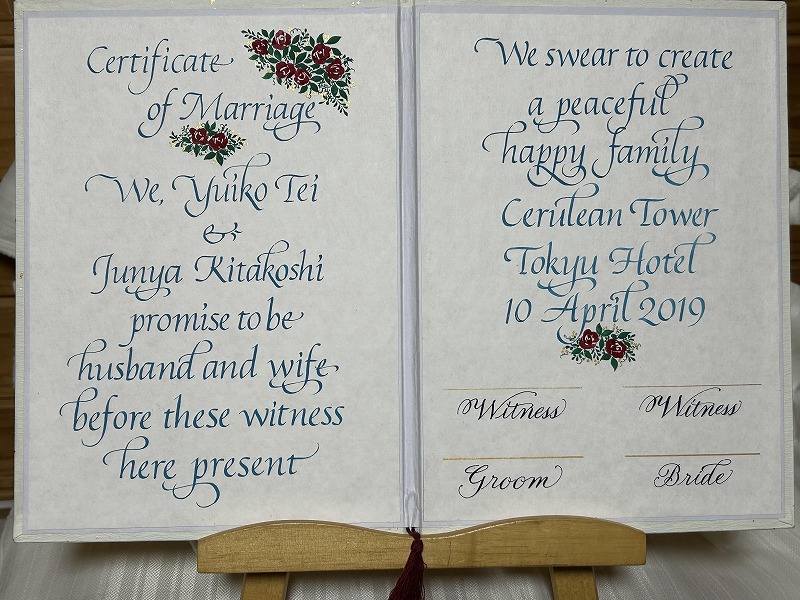 Certificate
of Marriage
We, Yuiko Tei
&
Junya Kitakoshi
promise to be
husband and wife
before these witness
here present
We swear to create
a peaceful
happy family
Cerulean Tower
Tokyu Hotel
10 April 2019
Witness Witness
Groom Bride